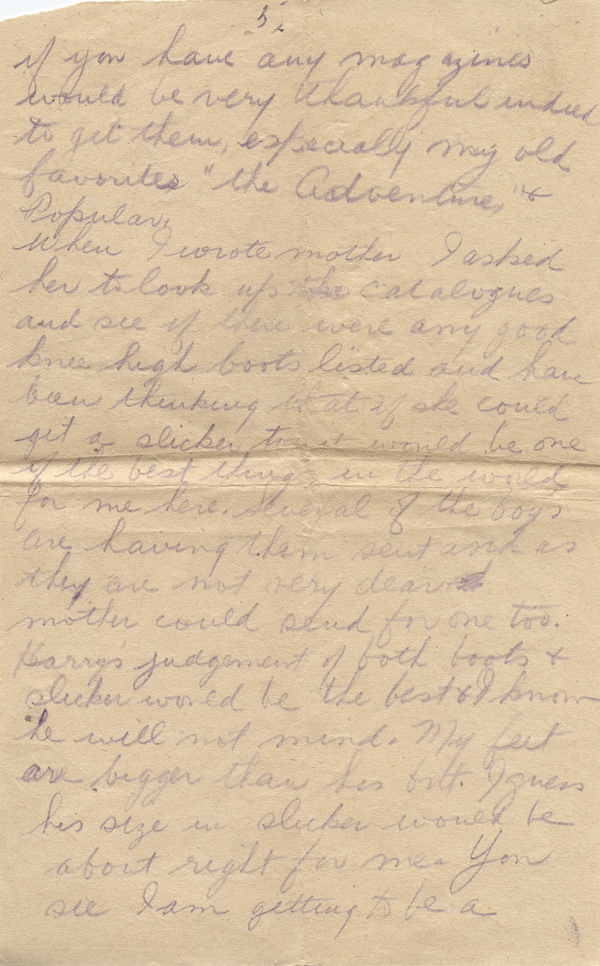 5,
if you have any magazines
would be very thankful indeed
to get them, especially my old
favorites "the Adventure," &
Popular.
When I wrote mother I asked
her to look up the catalogues
and see if there were any good
knee high boots listed and have
been thinking that if she could
get a slicker too it would be one
of the best things in the world
for me here. Several of the boys
are having them sent and as
they are not very dear
mother could send for one too.
Harry's judgement of both boots &
slicker would be the best & I know
he will not mind. My feet
are bigger than his but I guess
his size in slicker would be
about right for me. You
see I am getting to be a